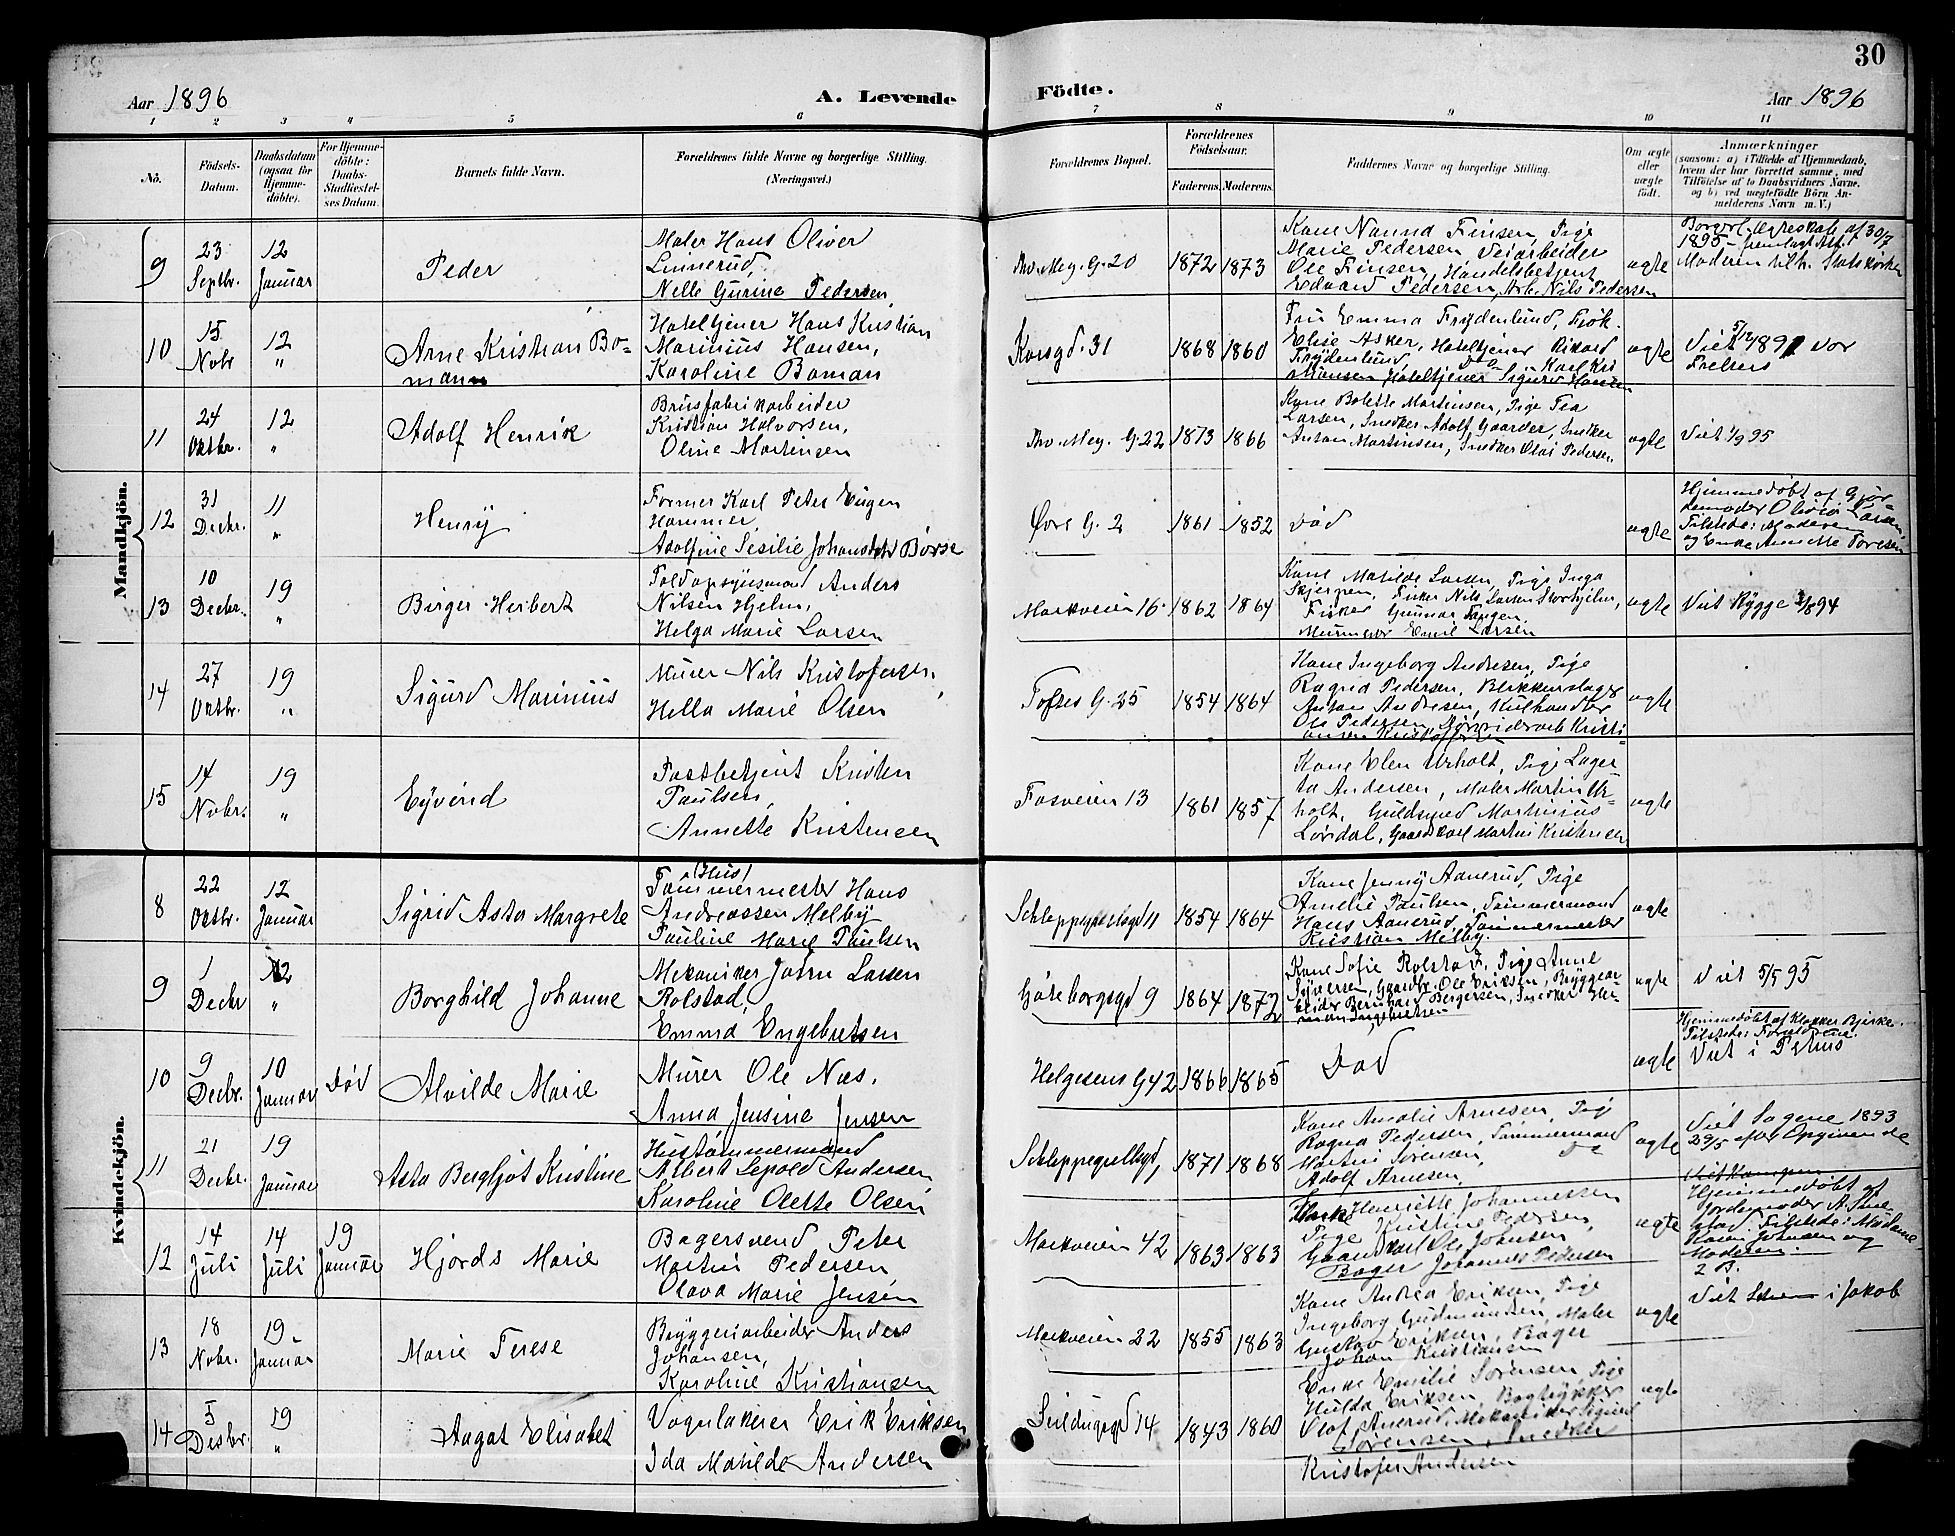 30
Aar 1896
A. Levende
Födte.
Aar 1896
1 2 3 4 5 6 7 8 9 10 11
No.
Födsels-
Datum.
Daabsdatum
(ogsaa för
Hjemme-
döbte).
For Hjemme-
döbte:
Daabs-
Stadfæstel-
ses Datum.
Barnets fulde Navn.
Forældrenes fulde Navne og borgerlige Stilling.
(Næringsvei.)
Forældrenes Bopæl.
Forældrenes
Födselsaar.
Faderens.
Moderens.
Faddernes Navne og borgerlige Stilling.
Om ægte
eller
uægte
födt.
Anmærkninger
(saasom: a) i Tilfælde af Hjemmedaab,
hvem der har forrettet samme, med
Tilföielse af to Daabsvidners Navne,
og b) ved uægtefödte Börn An-
melderens Navn m. V.)
Mandkjön.
9
23
Septbr.
12
Januar
Peder
Maler Hans Oliver
Linnerud,
Nelle Gurine Pedersen
Th. Mey. G. 20
1872
1873
Kone Nanna Finsen, Pige
Marie Pedersen, Veiarbeider
Ole Finsen, Handelsbetjent
Edvard Pedersen, Arb. Nils Pedersen
ægte
Borgerl. Ægteskab af 30/7
1895 - fremlagt Att.
Moderen tilh. Statskirken
10
15
Nobr
12
"
Arne Kristian Bo-
mann
Hoteltjener Hans Kristian
Marinius Hansen,
Karoline Boman
Korsgd. 31
1868
1860
Fru Emma Frydenlund, Frøk.
Elise Asker, Hoteltjener Rikard
Frydenlund, Do Karl Kri
stiansen, Hoteltjener Sigurd Hansen
ægte
Viet 5/12 1891 Vor
Frelsers
11
24
Oktbr.
12
"
Adolf Henrik
Brusfabrikarbeider
Kristian Halvorsen,
Oline Martinsen
Th. Mey. G. 22
1873
1866
Kone Bolette Martinsen, Pige Tea
Larsen, Snedker Adolf Gaarder, Snedker
Anton Martinsen, Snedker Olai Pedersen
ægte
Viet 1/9 95
12
31
Decbr.
11
"
Henry
Former Karl Peter Eugen
Hammer,
Adolfine Sesilie Johansdatr Børse
Øvre G. 2
1861
1852
Død
ægte
Hjemmedøbt af Gjor
demoder Olivia Larsen,
Tilstede: Moderen
og Enke Annette Toresen
13
10
Decbr.
19
"
Birger Herbert
Toldopsynsmand Anders
Nilsen Hjelm,
Helga Marie Larsen
Markveien 16.
1862
1864
Kone Matilde Larsen, Pige Inga
Skjerpen, Fisker Nils Larsen Storhjelm,
Fisker Gunnar Tangen,
Murmester Emil Larsen
ægte
Viet Rygge 1894
14
27
Oktbr.
19
"
Sigurd Marinius
Murer Nils Kristofersen,
Hella Marie Olsen
Toftes G. 25
1854
1864
Kone Ingeborg Andresen, Pige
Ragna Pedersen, Blikkenslager
Anton Andresen, Kulhandler
Ole Pedersen,
ægte
15
14
Nobr.
19
"
Eyvind
Postbetjent Kristen
Paulsen,
Annette Kristensen
Fosveien 13
1861
1857
Kone Elen Urholt, Pige Lager-
ta Andersen, Maler Martin Ur-
holt, Guldsmed Martinius
Lørdal, Gaardskarl Martin Kristensen
ægte
Kvindekjön.
8
22
Oktbr.
12
Januar
Sigrid Asta Margrete
(Hus)
Tømmermester Hans
Andreassen Melby
Pauline Marie Paulsen
Schleppegrelsgd 11
1854
1864
Kone Jenny Aanerud, Pige
Amelie Paulsen, Tømmermand
Hans Aanerud, Tømmermester
Kristian Melby.
ægte
9
1
Decbr
12
"
Borghild Johanne
Mekaniker Johan Larsen
Rolstad,
Emma Engebretsen
Göteborgsgd 9
1864
1872
Kone Sofie Rolstad, Pige Anne
Syversen, Gaardbr. Ole Eriksen, Bryggear
beider Bernhard Bergersen, Snedker Her-
man Ingebretsen
ægte
Viet 5/5 95
10
9
Decbr.
10
Januar
Død
Alvilde Marie
Murer Ole Næs.
Anna Jensine Jensen
Helgesens G 42
1866
1865
Død
ægte
Hjemmedøbt af Klokker Bjerke.
Tilstede: Forældrene.
Viet i Petrus
11
21
Decbr.
19
Januar
Asta Bergljot Kristine
Hustømmermand
Albert Lepold Andersen
Karoline Olette Olsen
Schleppegrellsgd,
1871
1868
Kone Amalie Arnesen, Pige
Ragna Pedersen, Tømmermand
Martin Sørensen, Do
Adolf Arnesen
ægte
Viet Sagene 1893
29/5 efter Opgivende
12
14
Juli
14
Juli
19
Januar
Hjørds Marie
Bagersvend Peter
Martin Pedersen
Olava Marie Jensen
Markveien 42
1863
1863
Enke Henriette Johannessen
Pige Kristine Pedersen,
Gaardskarl Ole Johnsen
Bager Johannes Pedersen
ægte
Hjemmedøbt af
Jordemoder A. Sme-
stad. Tilstede: Madame
Karen Johnsen og
Moderen.
2 B.
13
18
Nobr.
19
Januar
Marie Terese
Bryggeriarbeider Anders
Johansen,
Karoline Kristiansen
Markveien 22
1855
1863
Kone Andrea Eriksen, Pige
Ingeborg Gudmundsen, Maler
Gustav Eriksen, Bager
Johan Kristiansen
ægte
Viet i Jakob
14
5
Desbr.
19
"
Aagot Elisabet
Vognlakerer Erik Eriksen
Ida Matilde Andersen
Seildugsgd 14
1843
1860
Enke Emilie Sørensen, Pige
Hulda Eriksen, Bogtrykker
Olaf Anerud, Mekaniker Sigurd
Sørensen, Snedker
Kristofer Andersen
ægte